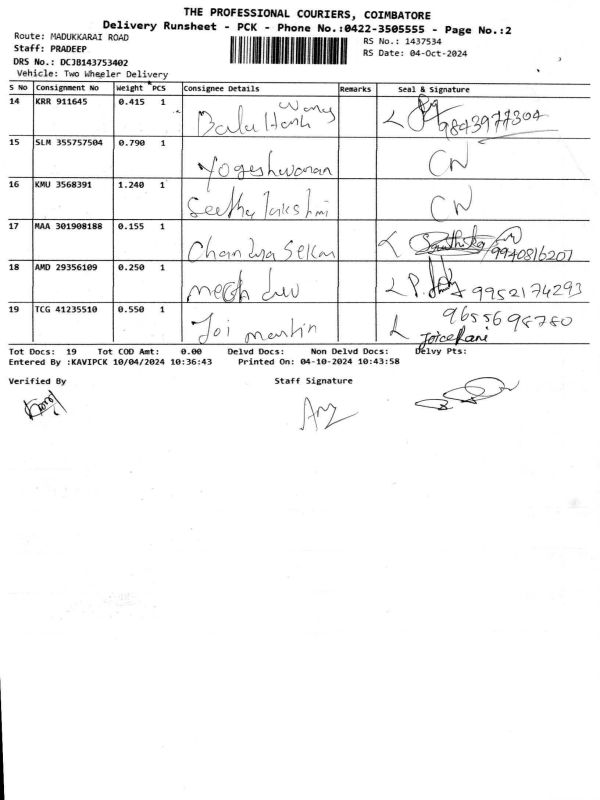 THE PROFESSIONAL COURIERS, COIMBATORE
Delivery Runsheet - PCK - Phone No.:0422-3505555 - Page No.:2
Route: MADUKKARAI ROAD
RS No.: 1437534
Staff: PRADEEP
RS Date: 04-Oct-2024
DRS No.: DCJB143753402
Vehicle: Two Wheeler Delivery
S No Consignment No Weight PCS Consignee Details Remarks Seal & Signature
14 KRR 911645 0.415 1 9843977304
15 SLM 355757504 0.790 1 Yogeshwaran CN
16 KMU 3568391 1.240 1 Seetha lakshmi CN
17 MAA 301908188 0.155 1 Chandra Sekar 9940816207
18 AMD 29356109 0.250 1 9952174293
19 TCG 41235510 0.550 1 Joi martin 9655698780
Joicerani
Tot Docs: 19 Tot COD Amt: 0.00 Delvd Docs: Non Delvd Docs: Delvy Pts:
Entered By :KAVIPCK 10/04/2024 10:36:43 Printed On: 04-10-2024 10:43:58
Verified By Staff Signature